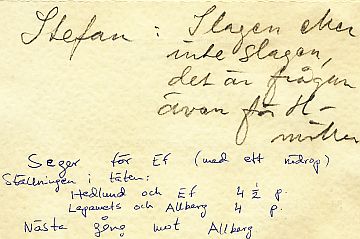 Stefan: Slagen eller
inte slagen,
det är frågan
även för H-
möller
Seger för Ef (med ett nödrop)
Ställningen i täten:
Hedlund och Ef 4 ½ p.
Lapawets och Allberg 4 p.
Nästa gång mot Allberg